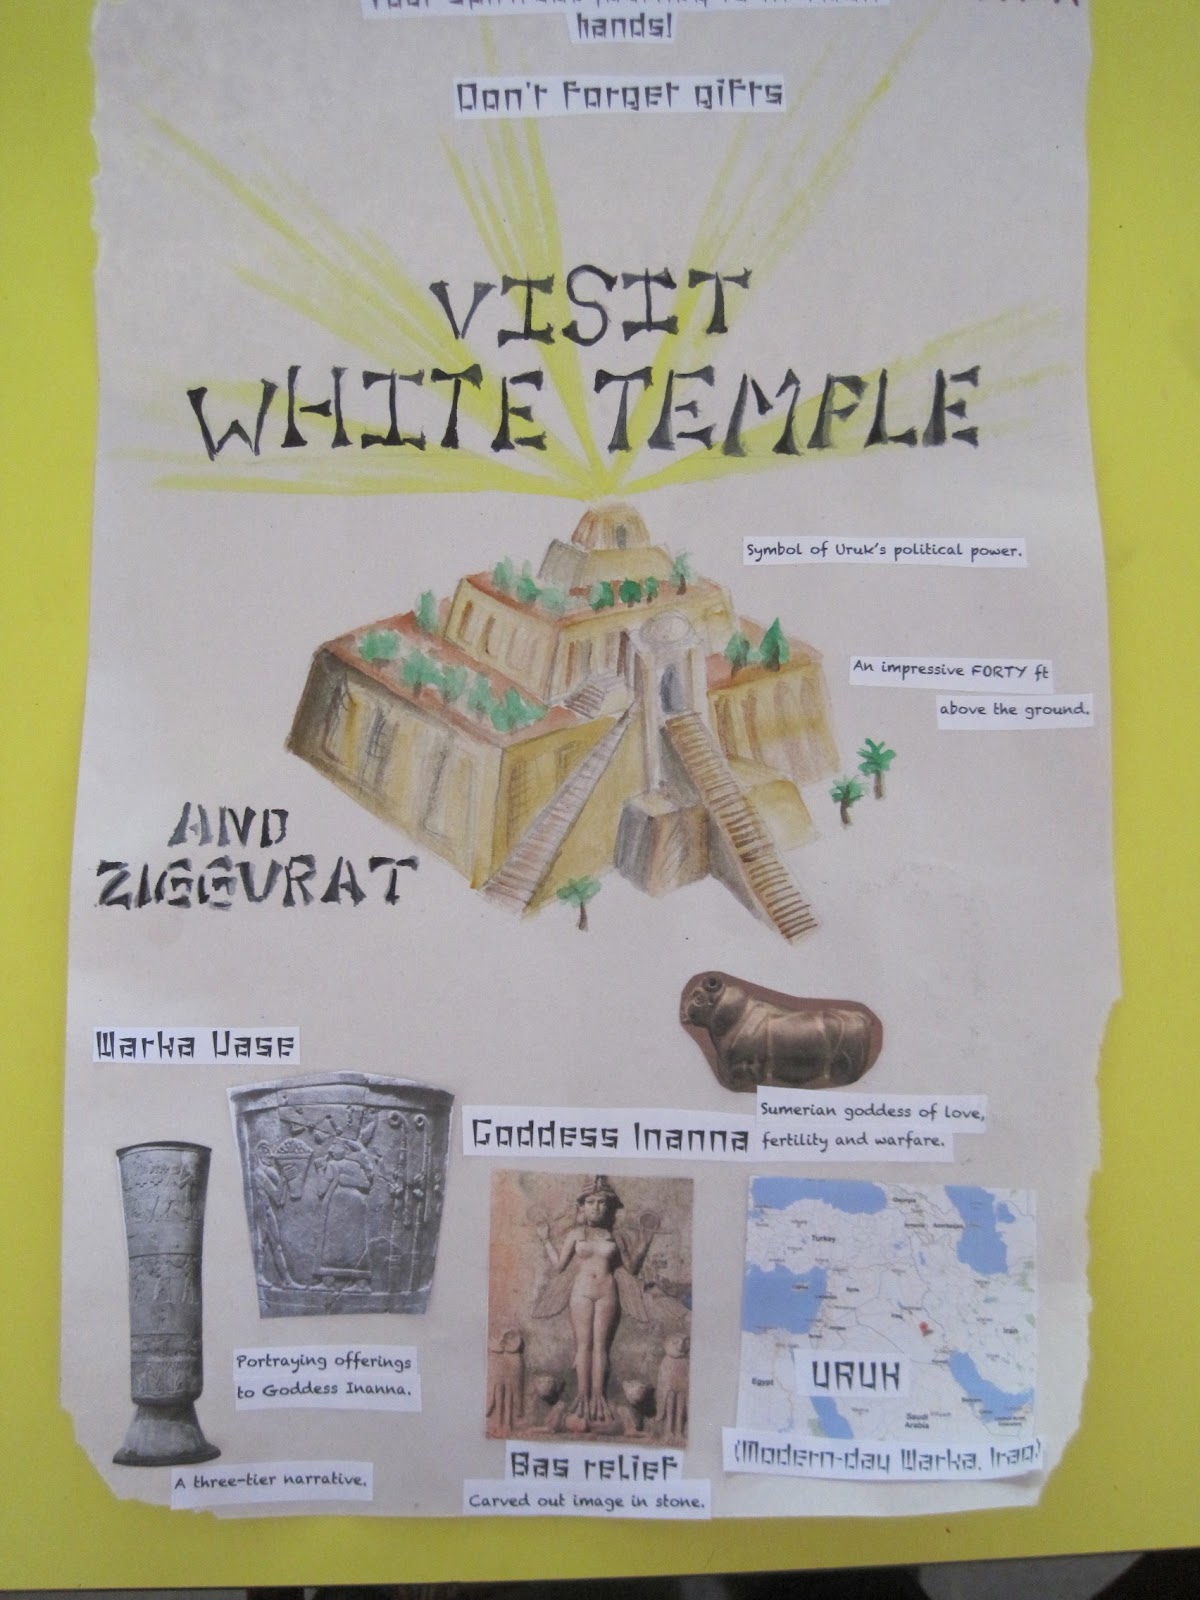 hands!
Don't forget gifts
VISIT
WHITE TEMPLE
Symbol of Uruk's political power.
An impressive FORTY ft
above the ground.
AND
ZIGGURAT
Warka Vase
Sumerian goddess of love,
Goddess Inanna fertility and warfare.
Turkey
Iran
Egypt
Saudi
Arabia
URUK
(Modern-day Warka, Iraq)
Portraying offerings
to Goddess Inanna.
A three-tier narrative.
Bas relief
Carved out image in stone.